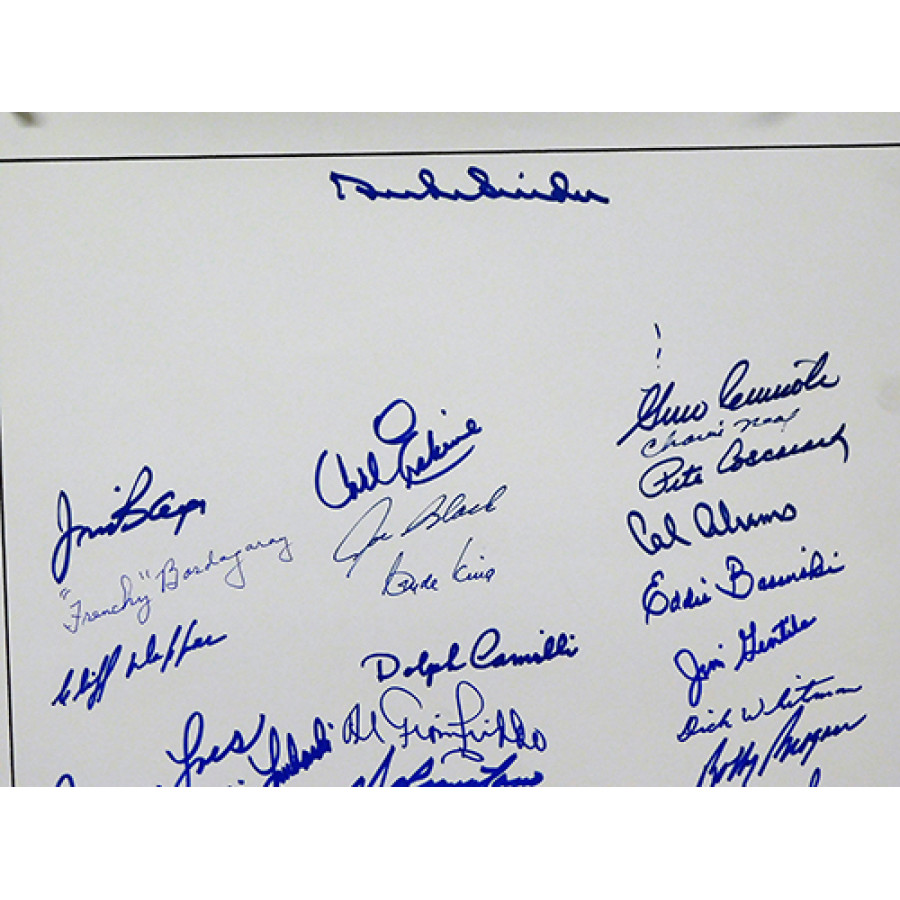 Duke Snider
Gino Cimoli
Carl Erskine
Pete Coscarart
Joe Black
Cal Abrams
"Frenchy" Bordagaray
Clyde King
Eddie Basinski
Cliff Dapper
Dolph Camilli
Jim Gentile
Al Gionfriddo
Dick Whitman
Bobby Bragan